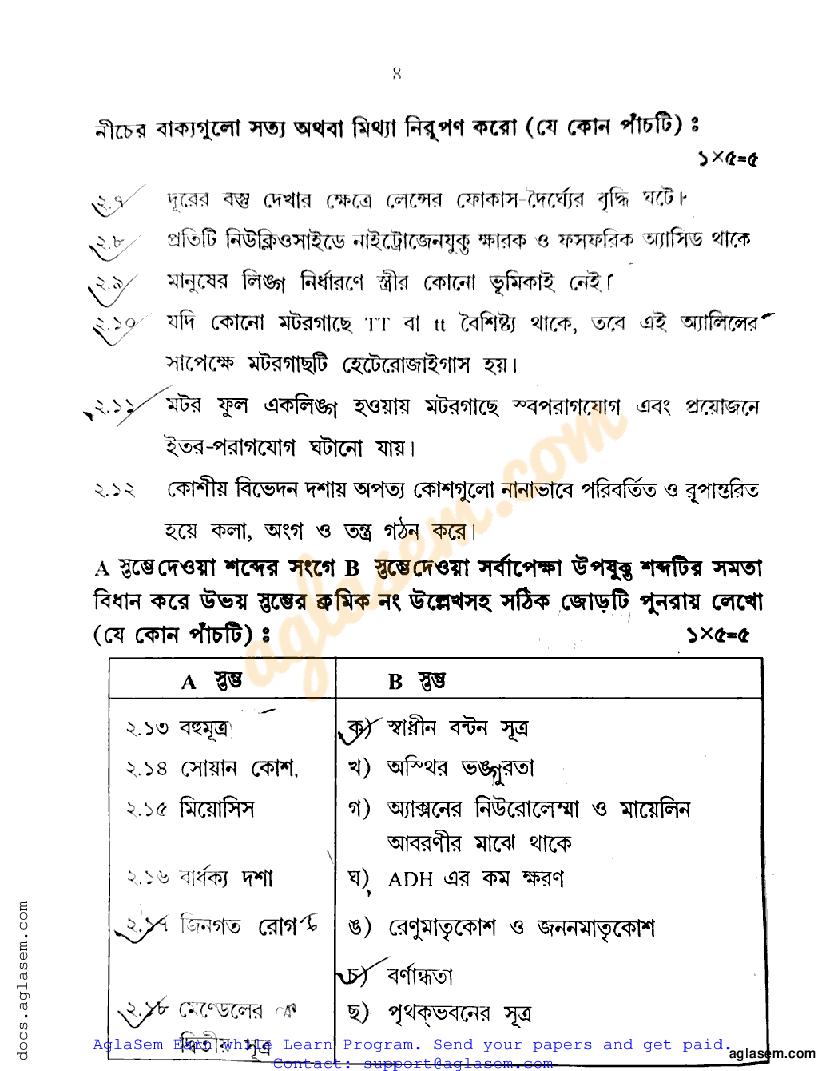 ৪
নীচের বাক্যগুলো সত্য অথবা মিথ্যা নিরূপণ করো (যে কোন পাঁচটি) :
১×৫=৫
২.৭ দূরের বস্তু দেখার ক্ষেত্রে লেন্সের ফোকাস-দৈর্ঘ্যের বৃদ্ধি ঘটে।
২.৮ প্রতিটি নিউক্লিওসাইডে নাইট্রোজেনযুক্ত ক্ষারক ও ফসফরিক অ্যাসিড থাকে
২.৯ মানুষের লিঙ্গ নির্ধারণে স্ত্রীর কোনো ভূমিকাই নেই।
২.১০ যদি কোনো মটরগাছে TT বা tt বৈশিষ্ট্য থাকে, তবে এই অ্যালিলের
সাপেক্ষে মটরগাছটি হেটেরোজাইগাস হয়।
২.১১ মটর ফুল একলিঙ্গ হওয়ায় মটরগাছে স্বপরাগযোগ এবং প্রয়োজনে
ইতর-পরাগযোগ ঘটানো যায়।
২.১২ কোশীয় বিভেদন দশায় অপত্য কোশগুলো নানাভাবে পরিবর্তিত ও রূপান্তরিত
হয়ে কলা, অংগ ও তন্ত্র গঠন করে।
A স্তম্ভে দেওয়া শব্দের সংগে B স্তম্ভে দেওয়া সর্বাপেক্ষা উপযুক্ত শব্দটির সমতা
বিধান করে উভয় স্তম্ভের ক্রমিক নং উল্লেখসহ সঠিক জোড়টি পুনরায় লেখো
(যে কোন পাঁচটি) : ১×৫=৫
A স্তম্ভ B স্তম্ভ
২.১৩ বহুমূত্র ক) স্বাধীন বন্টন সূত্র
২.১৪ সোয়ান কোশ. খ) অস্থির ভঙ্গুরতা
২.১৫ মিয়োসিস গ) অ্যাক্সনের নিউরোলেম্মা ও মায়েলিন
আবরণীর মাঝে থাকে
২.১৬ বার্ধক্য দশা ঘ) ADH এর কম ক্ষরণ
২.১৭ জিনগত রোগ ঙ) রেণুমাতৃকোশ ও জননমাতৃকোশ
চ) বর্ণান্ধতা
২.১৮ মেণ্ডেলের ছ) পৃথক্‌ভবনের সূত্র
দ্বিতীয় সূত্র
AglaSem Earn while Learn Program. Send your papers and get paid.
Contact: support@aglasem.com
aglasem.com
docs.aglasem.com
aglasem.com